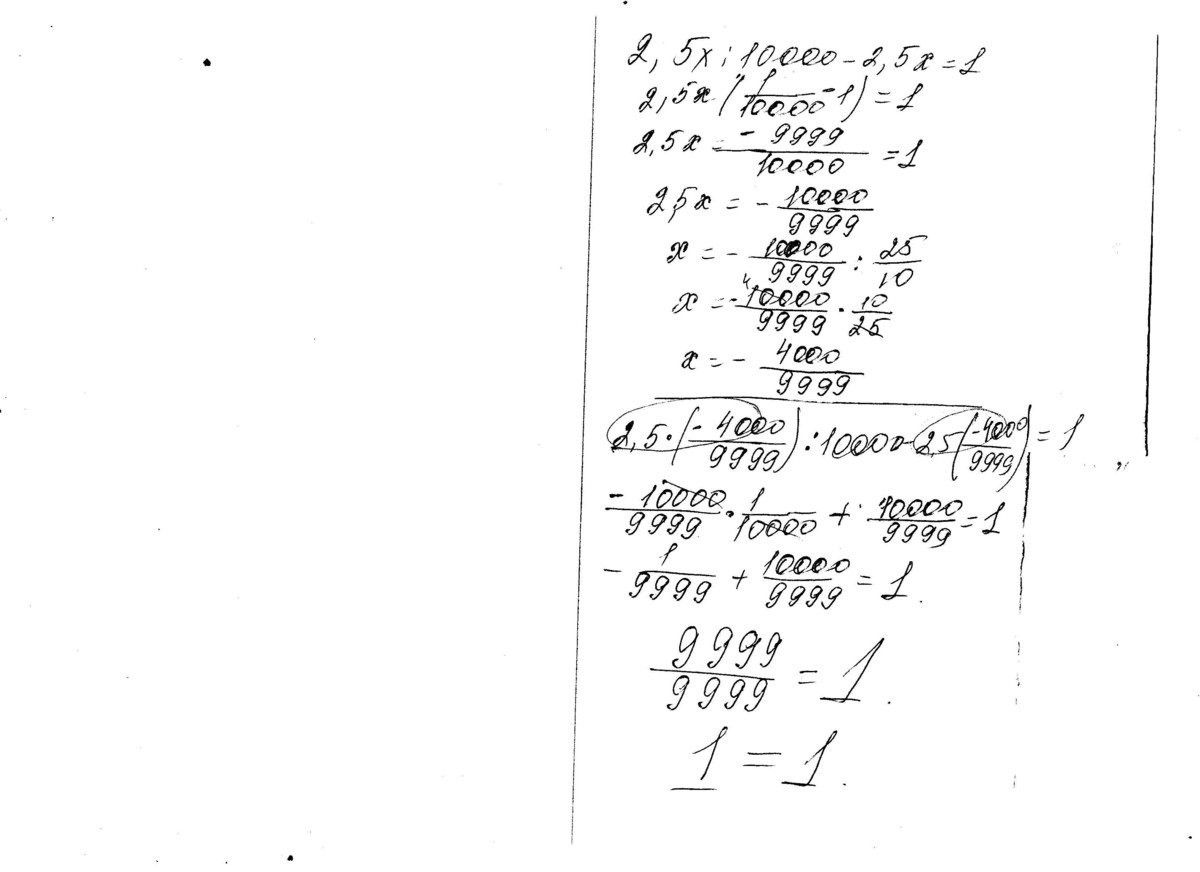 2,5x:10000-2,5x=1
2,5x(1/10000-1)=1
2,5x=-9999/10000=1
2,5x=-10000/9999
x=-10000/9999:25/10
x=-10000/9999·10/25
4
x=-4000/9999
2,5·(-4000/9999):10000-2,5(-4000/9999)=1
-10000/9999·1/10000+10000/9999=1
-1/9999+10000/9999=1.
9999/9999=1.
1=1.